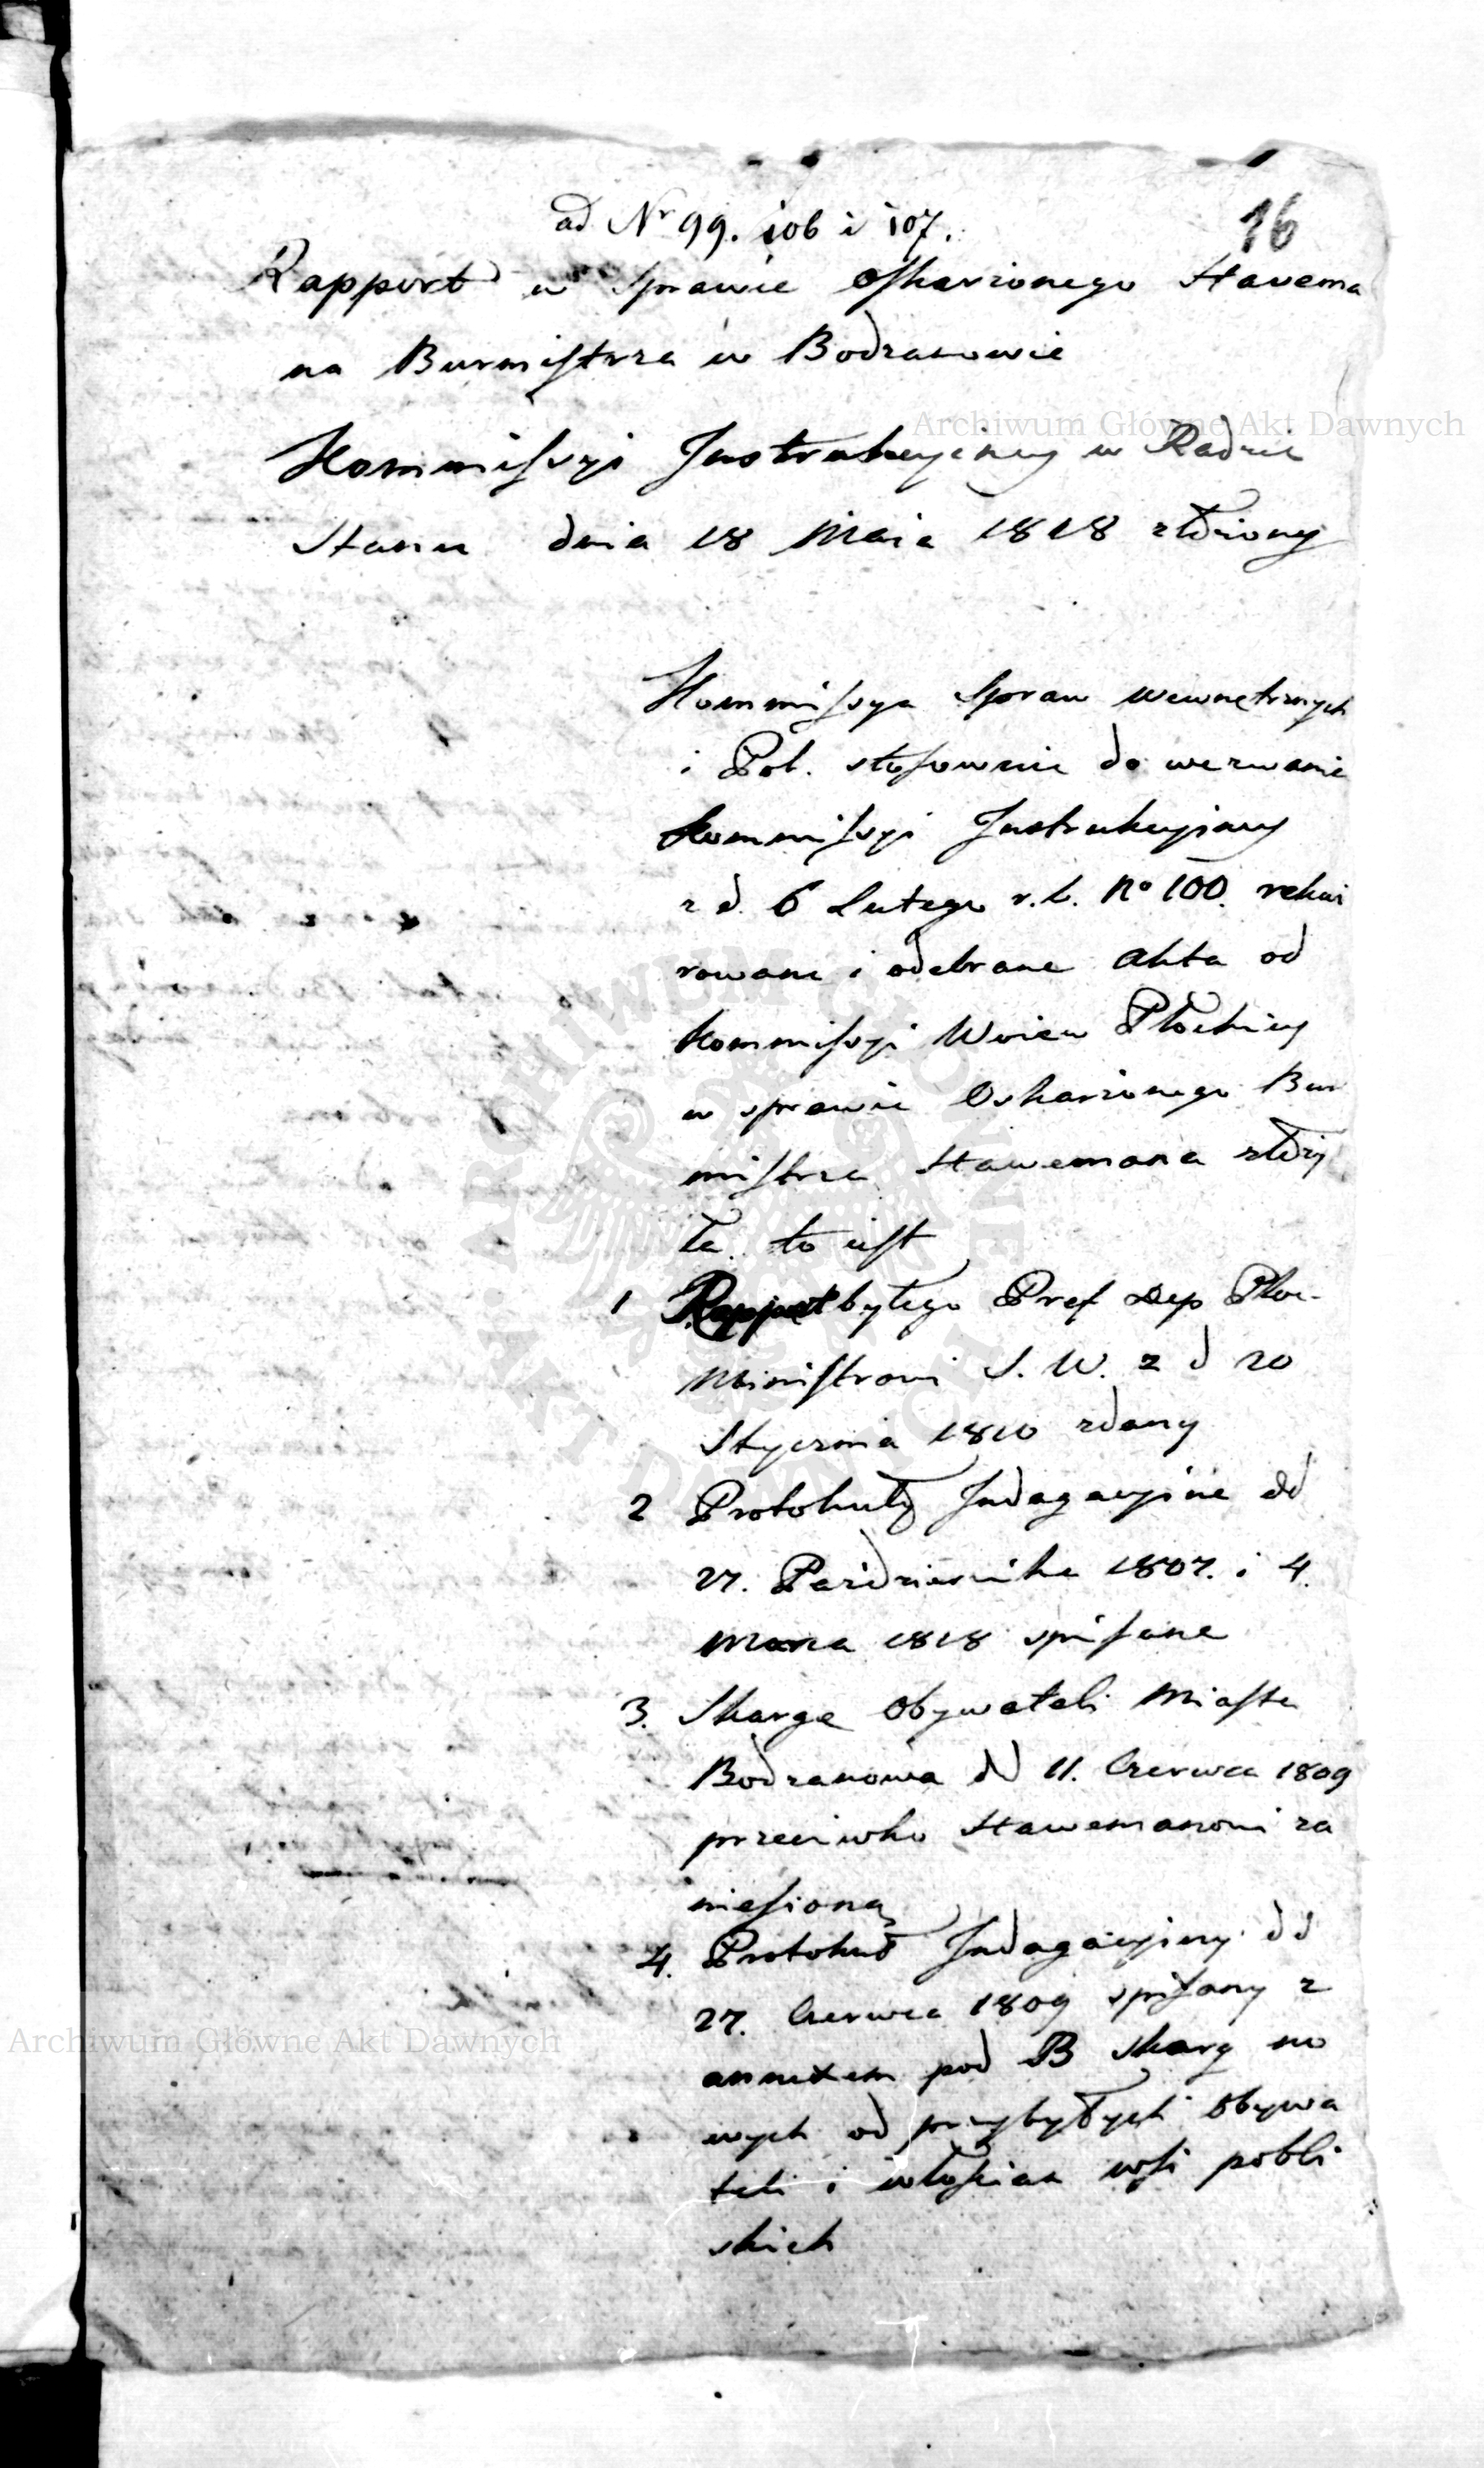 ad Nr 99. 106 i 107.
16
Rapport w sprawie oskarzonego Stavema
na Burmistrza w Bodzanowie
Kommissyi Instrukcyiney w Radzie
Stanu dnia 18 Maia 1818 złożony
Kommissya Spraw Wewnętrznych
i Pol. stosownie do wezwania
Kommissyi Instrukcyiney
z d. 6 Lutego r. b. No 100. rekwi
rowane i odebrane Akta od
Kommissyi Woiew Płockiey
w sprawie Oskarzonego Bur
mistrza Stawemana złoży
ła to iest
1 Rapport byłego Pref Dep Płoc.
Ministrowi S. W. z d 20
Stycznia 1810 zdany
2 Protokuły Indagacyine dd
27. Pazdziernika 1807. i 4.
Marca 1818 spisane
3. Skargę Obywateli Miasta
Bodzanowa dd 11. Czerwca 1809
przeciwko Stawemanowi za
niesioną
4. Protokuł Indagacyiny dd
27. Czerwca 1809 spisany z
annexem pod B skarg no
wych od przybyłych Obywa
teli i włościan wsi pobli
skich
Archiwum Główne Akt Dawnych
Archiwum Główne Akt Dawnych
ARCHIWUM GŁÓWNE AKT DAWNYCH